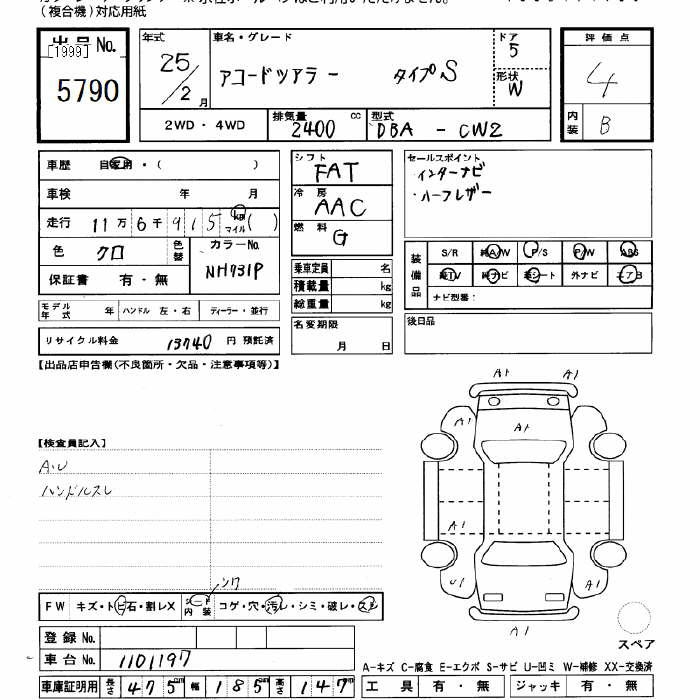 (複合機)対応用紙
出品 No.
[1999]
5790
年式
25/2月
車名・グレード
アコードツアラー タイプS
ドア
5
形状
W
評価点
4
内装
B
2WD・4WD
排気量
2400 cc
型式
DBA - CW2
車歴 自家用・( )
車検 年 月
走行 11万6千915 km マイル ( )
色 クロ 色替
カラーNo.
NH731P
保証書 有・無
シフト
FAT
冷房
AAC
燃料
G
セールスポイント
・インターナビ
・ハーフレザー
装備品
S/R 純A/W P/S P/W ABS
純TV 純ナビ 革シート 外ナビ エアB
ナビ型番:
乗車定員 名
積載量 kg
総重量 kg
モデル年式 年 ハンドル 左・右 ディーラー・並行
リサイクル料金 13740 円 預託済
名変期限
月 日
後日品
【出品店申告欄(不良箇所・欠品・注意事項等)】
A1 A1
A1 A1
A1
U1 A1
A1
【検査員記入】
A.U
ハンドルスレ
シワ
FW キズ・トビ石・割レX シート内装 コゲ・穴・汚レ・シミ・破レ・スレ
登録 No.
車台 No. 1101197
スペア
A-キズ C-腐食 E-エクボ S-サビ U-凹ミ W-補修 XX-交換済
車庫証明用 長さ 475cm 幅 185cm 高さ 147cm
工具 有・無 ジャッキ 有・無